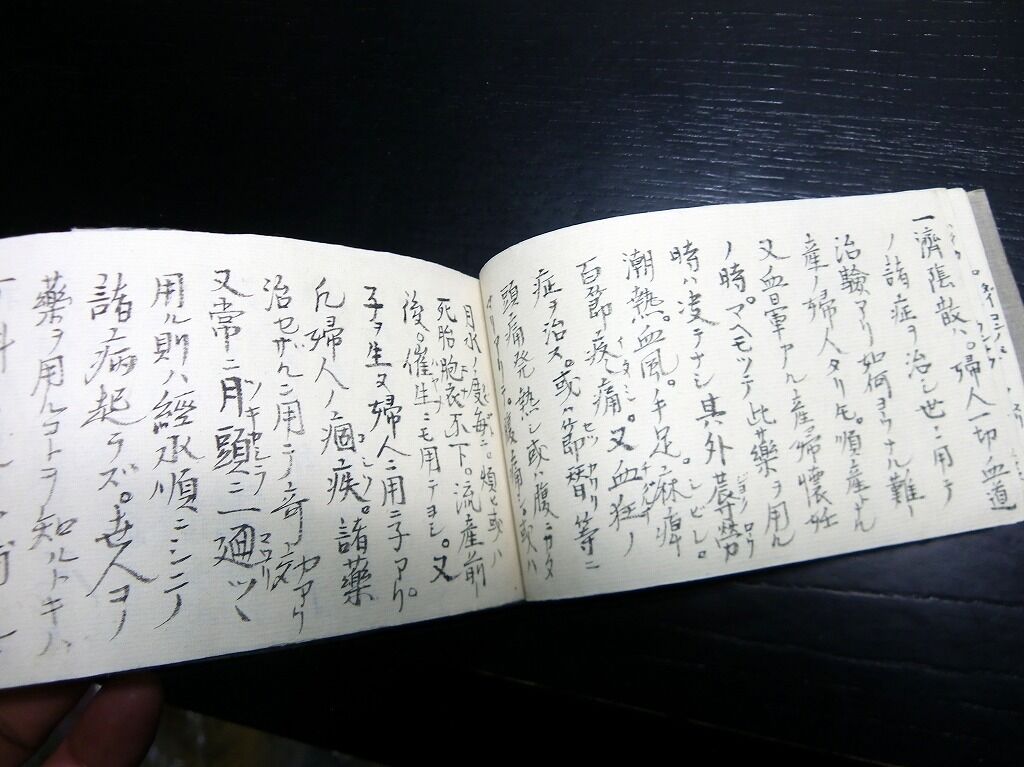 一濟陰散ハ。婦人一切血道
ノ諸症ヲ治シ世ニ用テ
治驗アリ如何ヨウナル難
産ノ婦人タリ𪜈。順産サセ
又血暈アル産婦懐妊
ノ時。マヘモツテ此藥ヲ用ル
時ハ滞テナシ其外蓐労
潮熱。血風。手足。麻痺シビレ。
百節疼痛。又血狂ノ
症ヲ治ス。或ハ昏等ニ
頭痛発熱シ或ハ腹ニカタ
マリアリテ。腹痛シ或ハ
月水ノ度毎ニ。煩セ或ハ
死胎胞衣不下。流産前
後。催生ニモ用テヨシ。又
子ヲ生又婦人ニ用ニ子アリ。
凡婦人ノ痼疾。諸藥
治セザルニ用テ奇效アリ
又常ニ月頭ニ二廻ツヽ
用ル則ハ經水順ニシテ
諸病起ラズ。世人ヲ
藥ヲ用ルコトヲ知ルトキハ